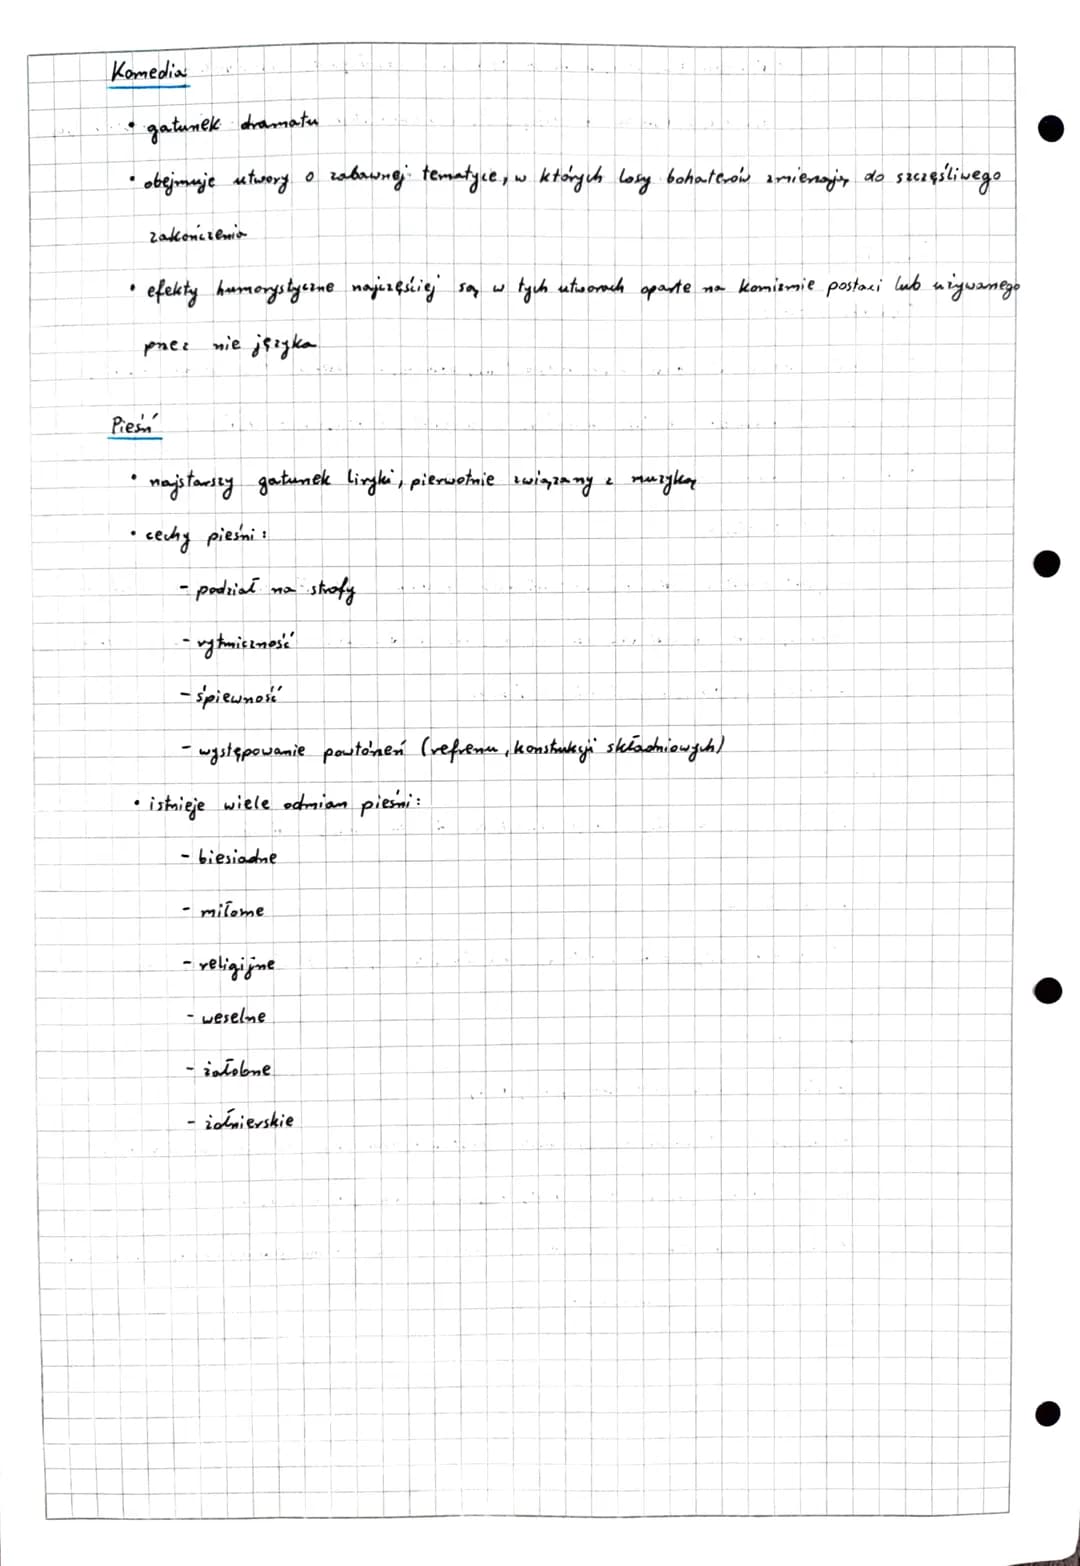 Komedia
• gatunek dramatu
• obejmuje utwory o zabawnej tematyce, w których losy bohaterów zmierzają do szczęśliwego
zakończenia
• efekty humorystyczne najczęściej są w tych utworach oparte na komizmie postaci lub używanego
przez nie języka
Pieśń
• najstarszy gatunek liryki, pierwotnie związany z muzyką
• cechy pieśni:
- podział na strofy
- rytmiczność
- śpiewność
- występowanie powtórzeń (refrenu, konstrukcji składniowych)
• istnieje wiele odmian pieśni:
- biesiadne
- miłosne
- religijne
- weselne
- żałobne
- żołnierskie